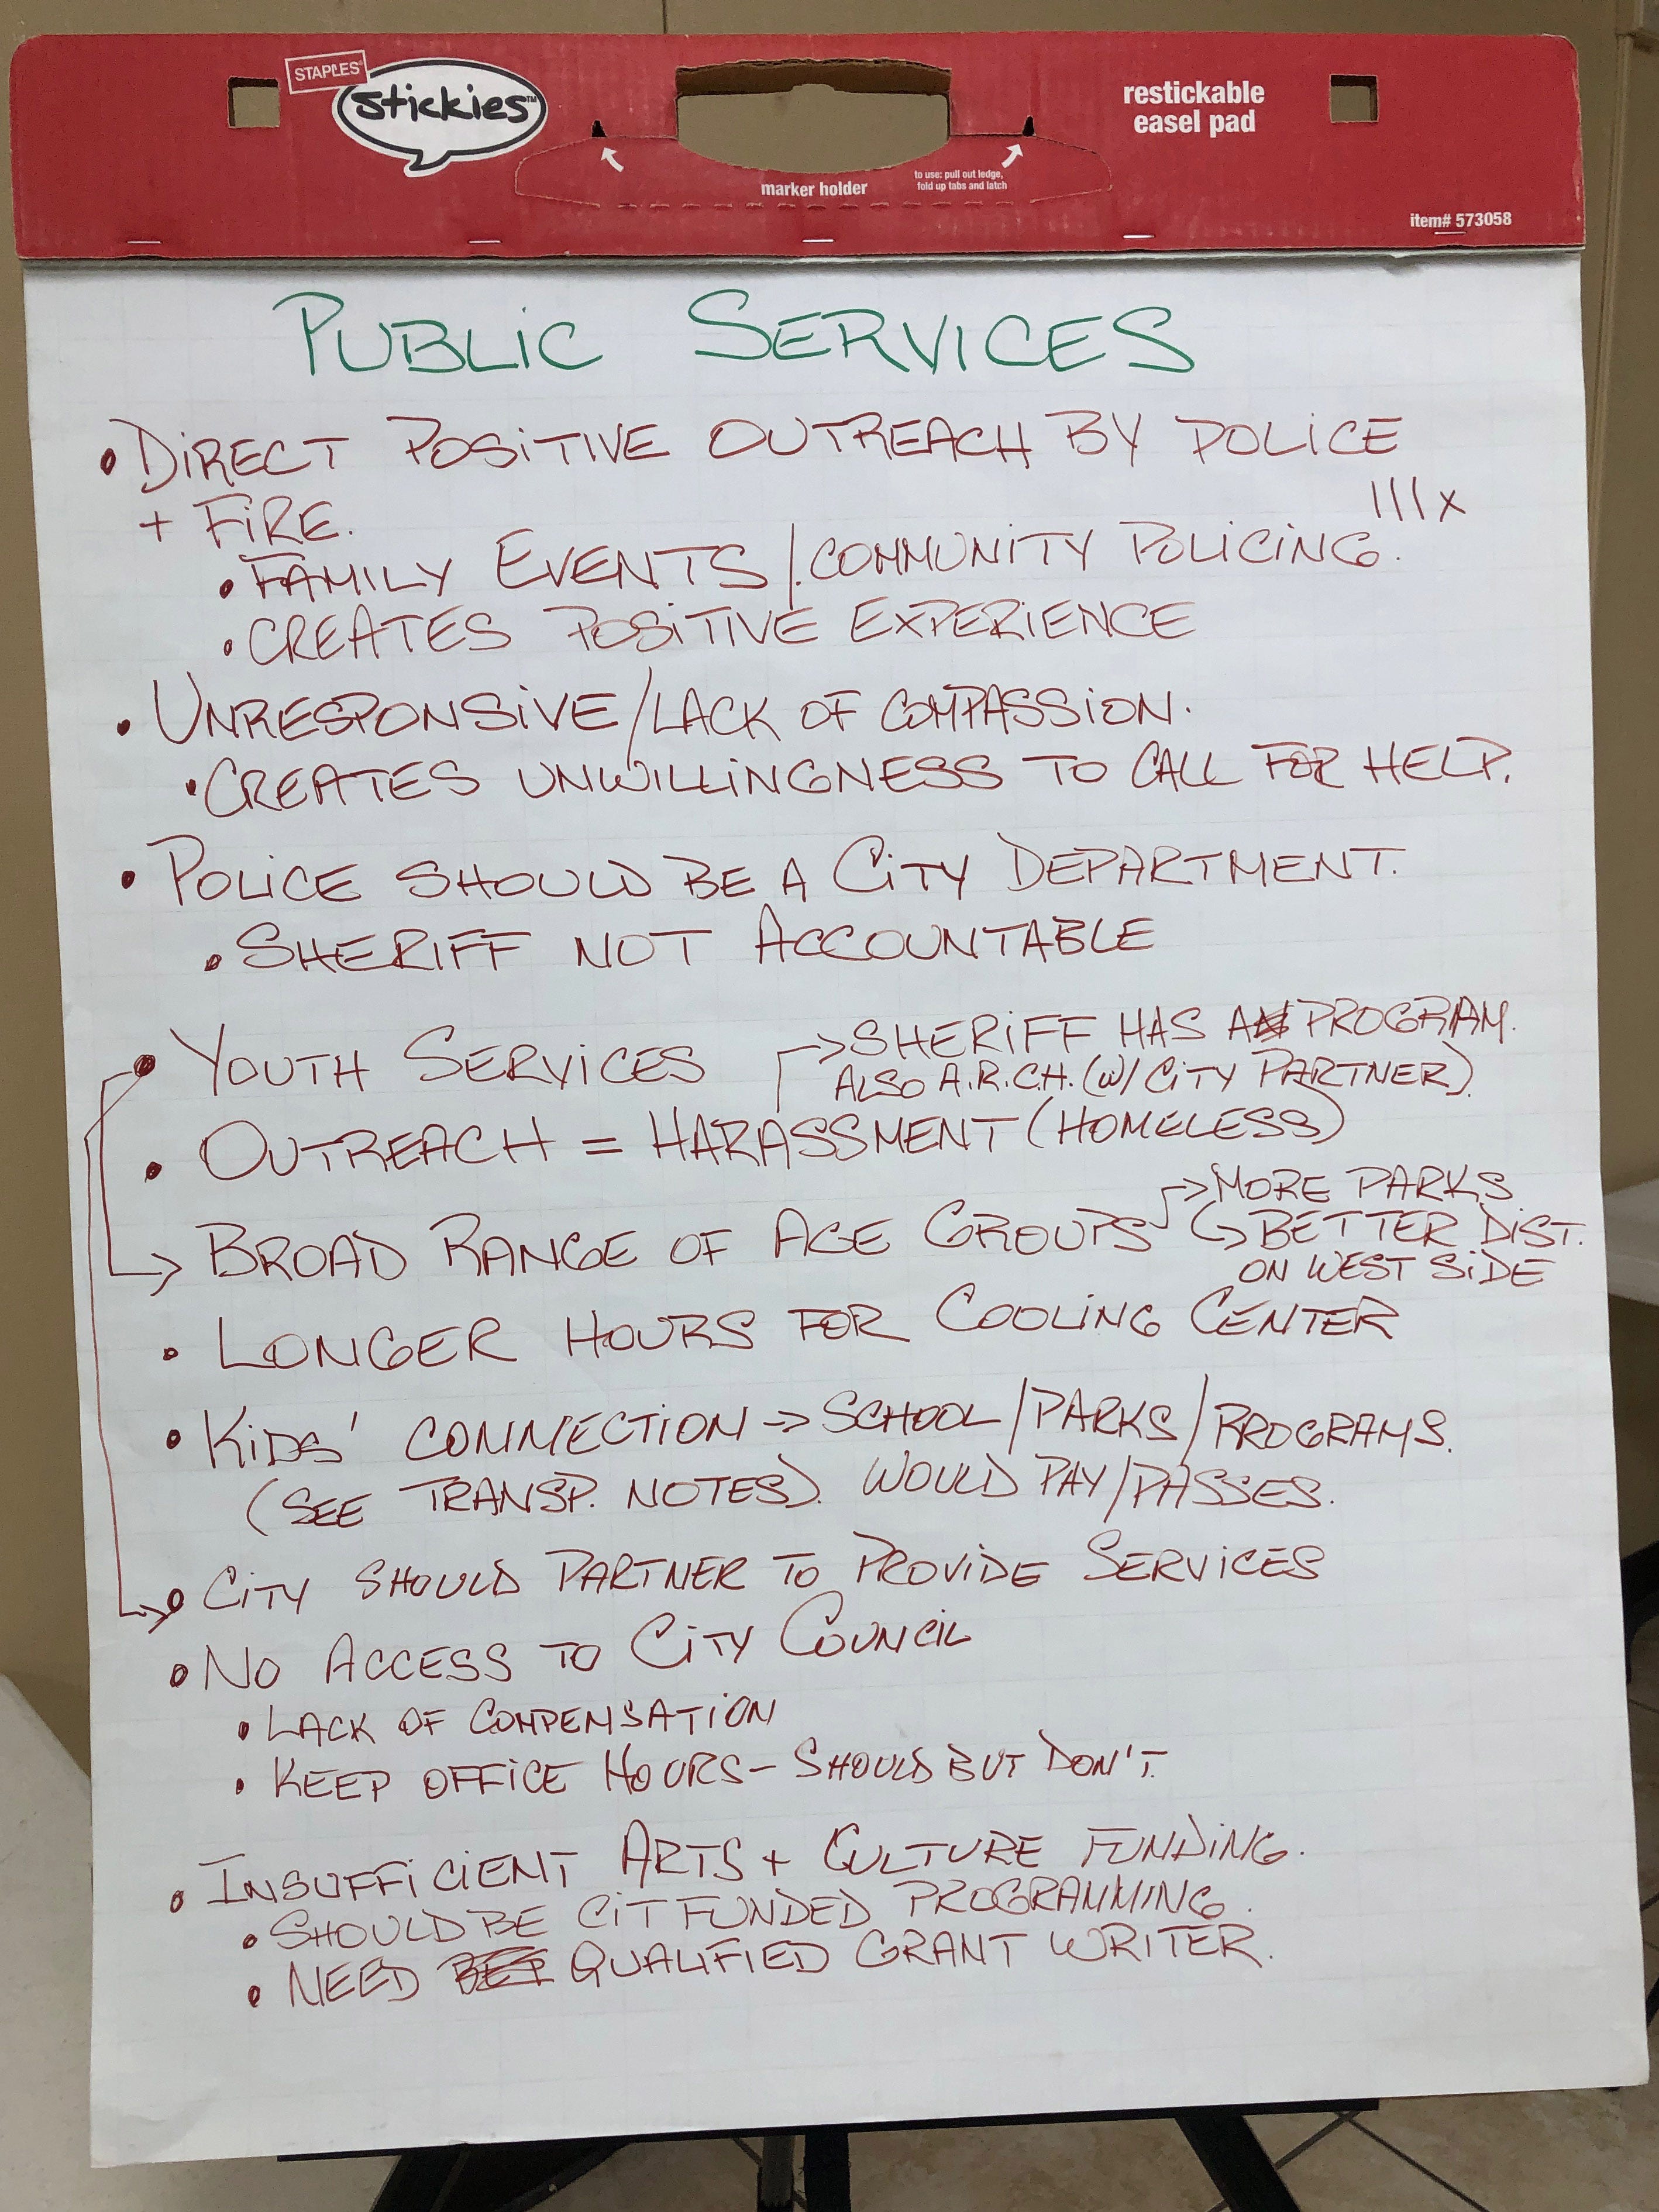 STAPLES
stickies™
restickable
easel pad
marker holder
to use: pull out ledge,
fold up tabs and latch
item# 573058
PUBLIC SERVICES
• DIRECT POSITIVE OUTREACH BY POLICE
+ FIRE.
|||x
• FAMILY EVENTS/COMMUNITY POLICING.
• CREATES POSITIVE EXPERIENCE
• UNRESPONSIVE/LACK OF COMPASSION.
• CREATES UNWILLINGNESS TO CALL FOR HELP.
• POLICE SHOULD BE A CITY DEPARTMENT.
• SHERIFF NOT ACCOUNTABLE
• YOUTH SERVICES
→ SHERIFF HAS A PROGRAM.
ALSO A.R.C.H. (W/ CITY PARTNER)
• OUTREACH = HARASSMENT (HOMELESS)
→ BROAD RANGE OF AGE GROUPS
→ MORE PARKS
↳ BETTER DIST.
ON WEST SIDE
• LONGER HOURS FOR COOLING CENTER
• KIDS' CONNECTION → SCHOOL/PARKS/PROGRAMS.
(SEE TRANSP. NOTES). WOULD PAY/PASSES.
• CITY SHOULD PARTNER TO PROVIDE SERVICES
• NO ACCESS TO CITY COUNCIL
• LACK OF COMPENSATION
• KEEP OFFICE HOURS – SHOULD BUT DON'T.
• INSUFFICIENT ARTS + CULTURE FUNDING.
• SHOULD BE CIT FUNDED PROGRAMMING.
• NEED QUALIFIED GRANT WRITER.